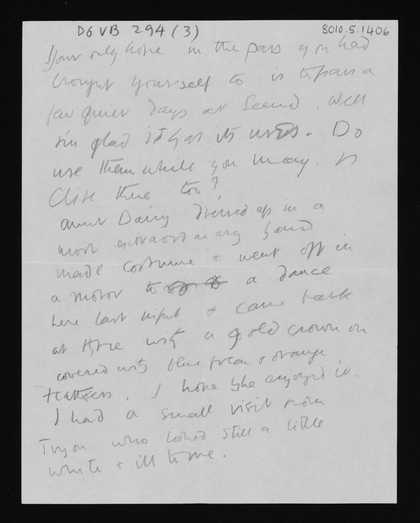 DG VB 294 (3)
8010.5.1406
Your only hope in the pass you had
brought yourself to is to pass a
few quiet days at Seend. Well
I'm glad it has its uses. Do
use them while you may. Is
Clive there too?
Aunt Daisy dressed up in a
most extraordinary hand
made costume & went off in
a motor to a dance
here last night & came back
at three with a gold crown on
covered with blue & orange
feathers. I hope she enjoyed it.
I had a small visit from
who looked still a little
white & ill to me.